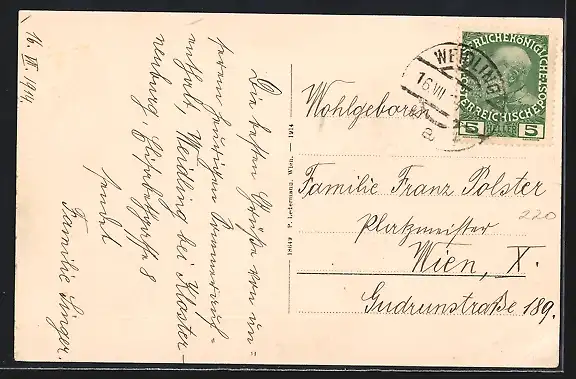 16. VII. 1914.
Die besten Grüße von un=
serem heurigen Sommerauf-
enthalt, Weidling bei Kloster-
neuburg, Elisabethgasse 8
sendet
Familie Singer.
18649 P. Ledermann, Wien. — 1914
WEIDLING
16 VII
a
KAISERLICHE KÖNIGLICHE POST
ÖSTERREICHISCHE
5 HELLER 5
Wohlgeboren
Familie Franz Polster
Platzmeister
Wien, X.
Gudrunstraße 189.
220